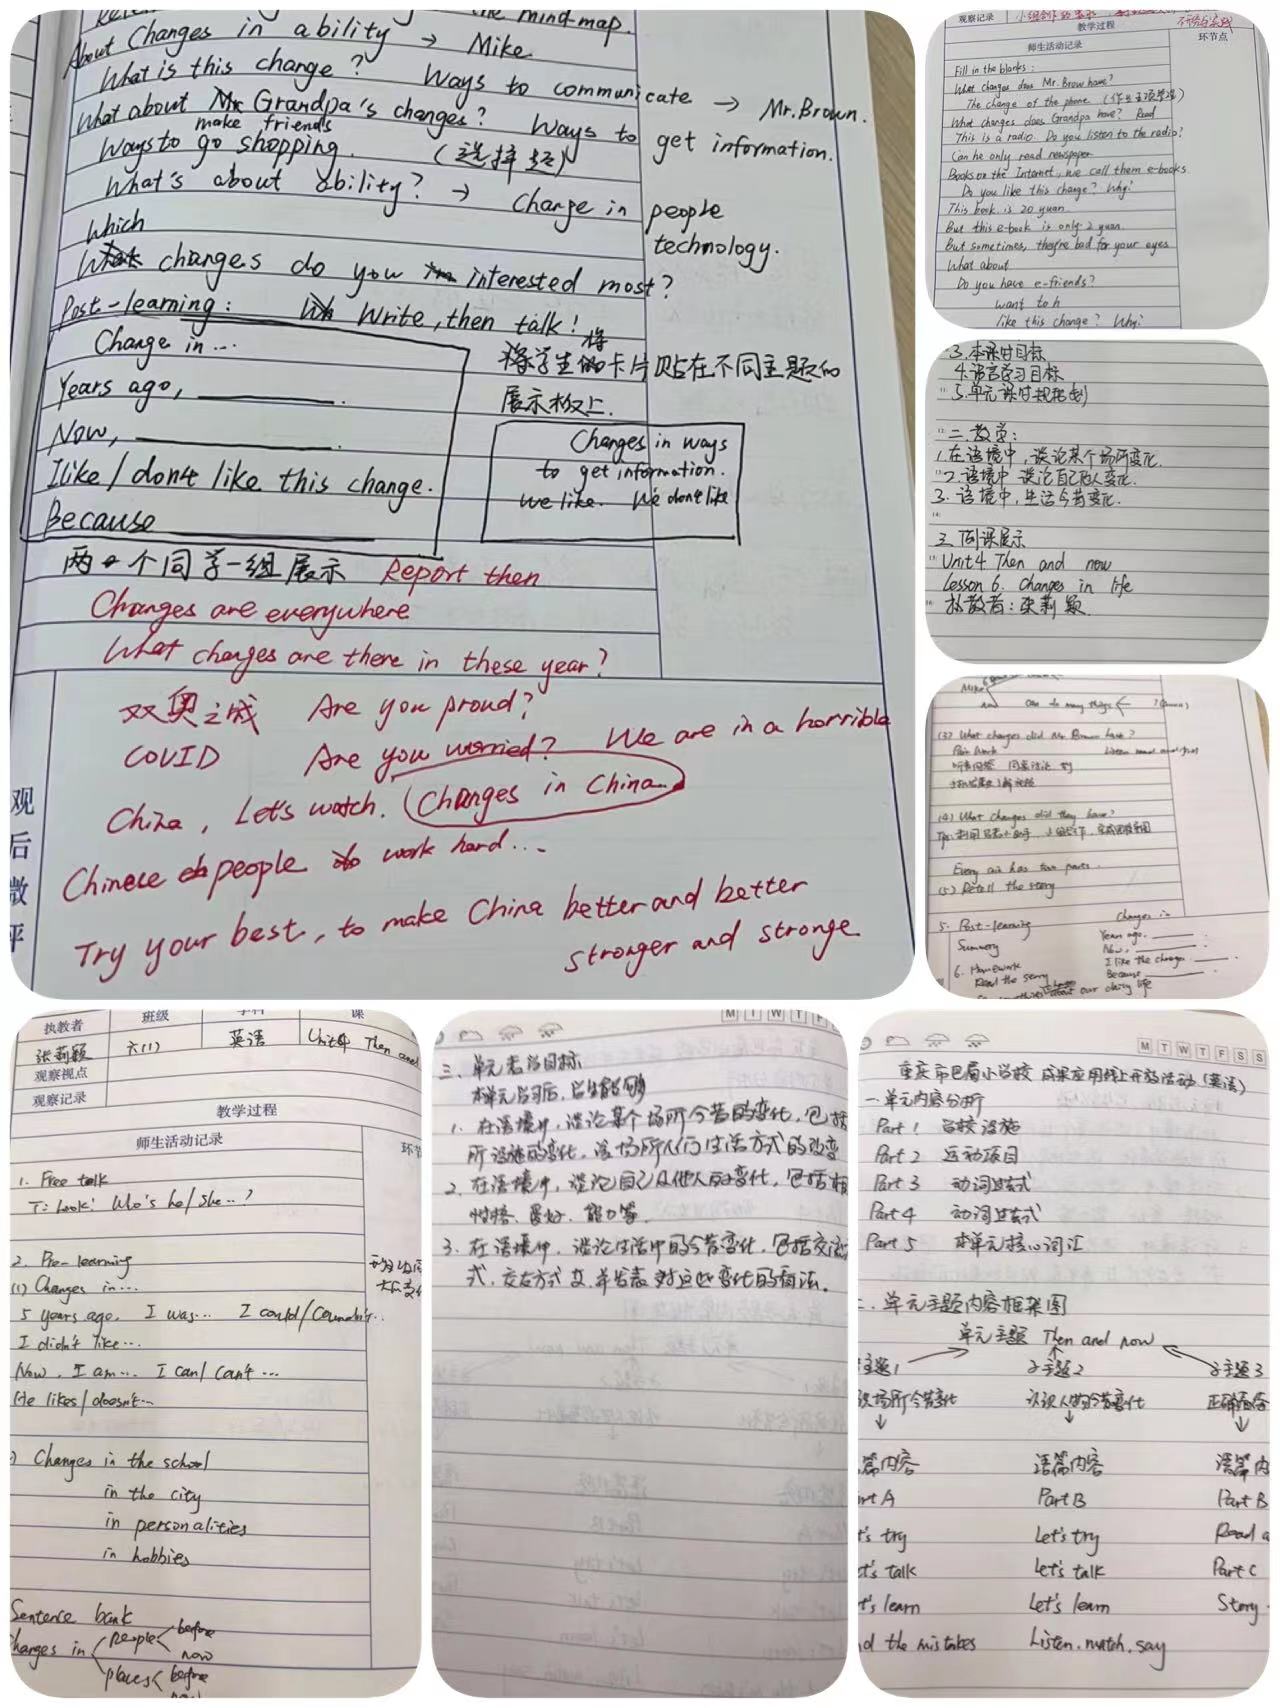 the mind-map.
About Changes in ability → Mike.
What is this change? Ways to communicate → Mr. Brown.
What about Grandpa's changes? Ways to get information.
make friends
Ways to go shopping. (选择题)
What's about ability? → Change in people
technology.
Which
changes do you interested most?
Post-learning: Write, then talk!
Change in...
Years ago, ______.
Now, ______.
I like / don't like this change.
Because ______
将学生的卡片贴在不同主题的
展示板上.
Changes in ways
to get information.
we like. We don't like
两个同学一组展示 Report then
Changes are everywhere
What changes are there in these year?
双奥之城 Are you proud?
COVID Are you worried? We are in a horrible
China, Let's watch. Changes in China...
Chinese people work hard...
Try your best, to make China better and better
stronger and stronge
观后微评
观察记录
教学过程
师生活动记录
环节点
Fill in the blanks:
What changes does Mr. Brow have?
The change of the phone.
What changes does Grandpa have? Read
This is a radio. Do you listen to the radio?
Can he only read newspaper
Books on the Internet, we call them e-books.
Do you like this change? Why?
This book is 20 yuan.
But this e-book is only 2 yuan.
But sometimes, they're bad for your eyes
What about
Do you have e-friends?
want to h
like this change? Why?
3.本课时目标
4.语言学习目标
5.单元课时规划
二.教学:
1.在语境中,谈论某个场所变化.
2.语境中谈论自己他人变化.
3.语境中,生活今昔变化.
三.例课展示
Unit4 Then and now
Lesson 6. Changes in life
执教者:张莉颖
Mike
now can do many things
(3) What changes did Mr. Brown have?
Pair Work
(4) What changes did they have?
(5) Retell the story
5. Post-learning
Summary
Changes in
Years ago, ______.
Now, ______.
I like the change ______.
Because ______
6. Homework
about our daily life
执教者 班级 课
张莉颖 六(1) 英语 Unit4 Then and
观察视点
观察记录
教学过程
师生活动记录
1. Free talk
T: Look! Who's he/she...?
2. Pre-learning
(1) Changes in...
5 years ago, I was... I could/couldn't...
I didn't like...
Now, I am... I can/can't...
He likes/doesn't...
Changes in the school
in the city
in personalities
in hobbies
Sentence bank
Changes in people before
now
places before
三.单元教学目标
本单元学习后,学生能够
1. 在语境中,谈论某个场所今昔的变化,包括
所设施的变化,该场所人们生活方式的改变
2. 在语境中,谈论自己及他人的变化,包括
性格、爱好、能力等.
3. 在语境中,谈论生活中的今昔变化,包括交流
式,交友方式 并发表对这些变化的看法.
M T W T F S S
重庆市巴蜀小学校 成果应用线上开放活动(英语)
一.单元内容分析
Part 1 学校设施
Part 2 运动项目
Part 3 动词过去式
Part 4 动词过去式
Part 5 本单元核心词汇
二.单元主题内容框架图
单元主题 Then and now
主题1 子主题2 子主题3
场所今昔变化 认识人物今昔变化 正确看待
篇内容 语篇内容 语篇内
Part A Part B Part B
Let's try Let's try Read a
Let's talk Let's talk Part C
Let's learn Let's learn Story
d the mistakes Listen, match, say